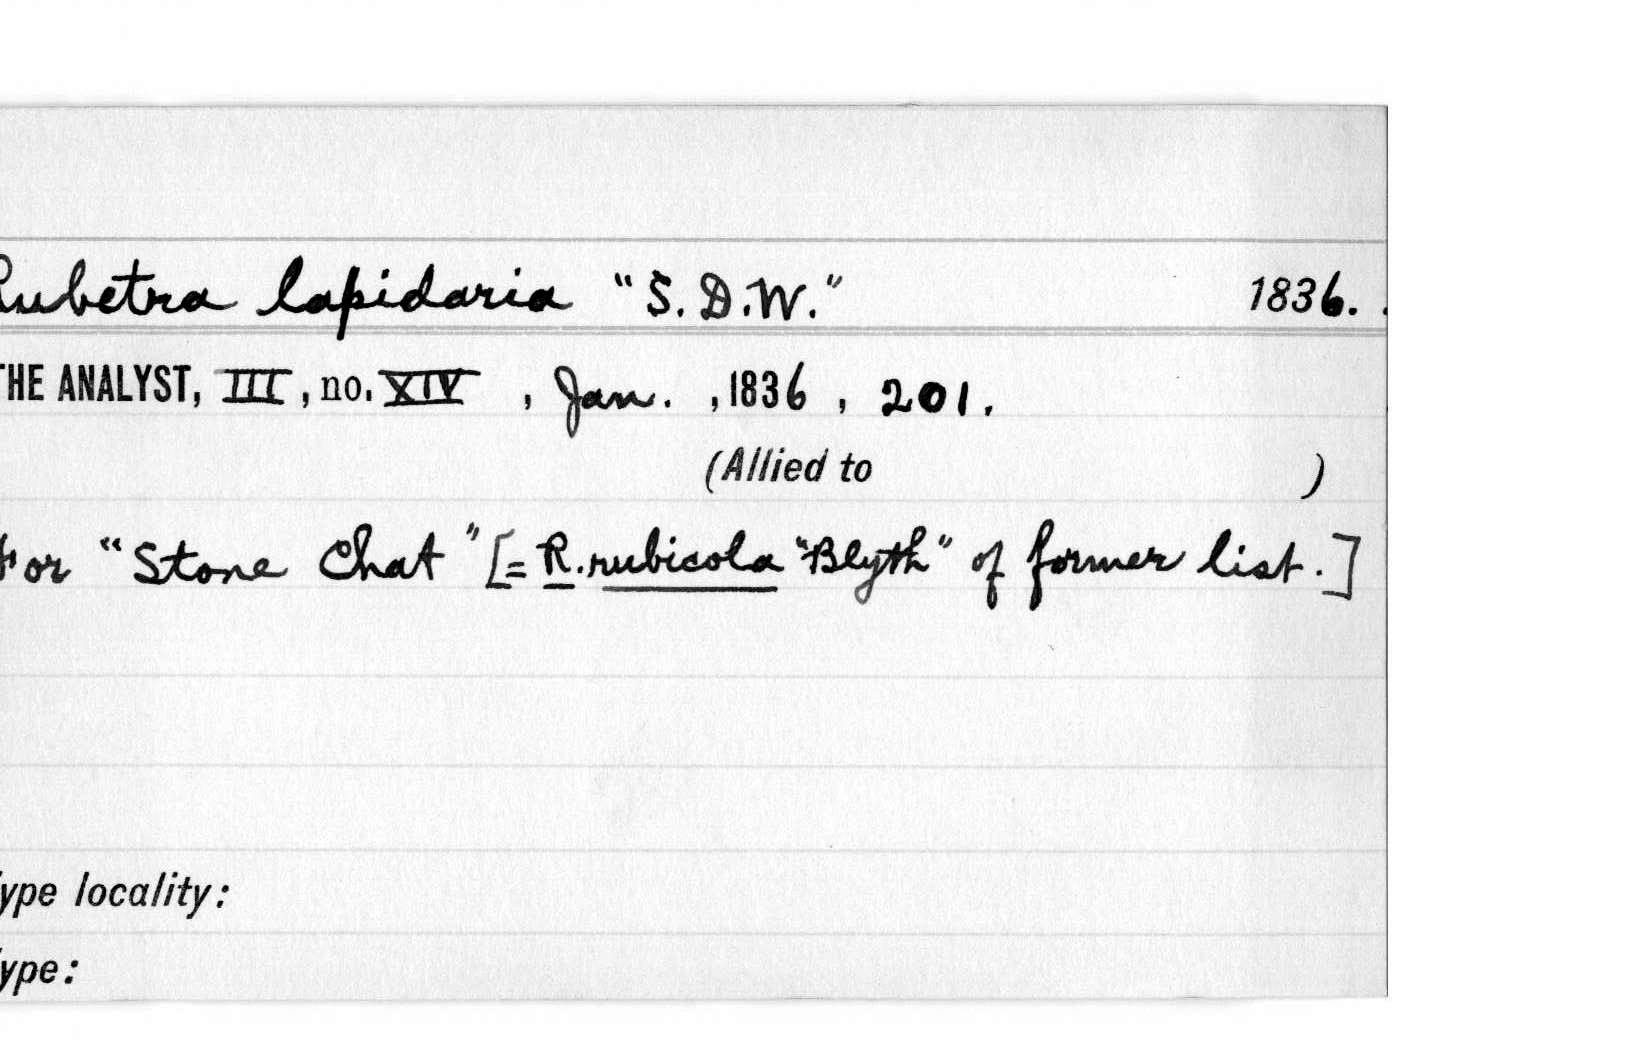 Rubetra lapidaria "S. D. W." 1836.
THE ANALYST, III, no. XIV, Jan., 1836, 201.
(Allied to )
For "Stone Chat" [= R. rubicola "Blyth" of former list.]
ype locality:
ype: